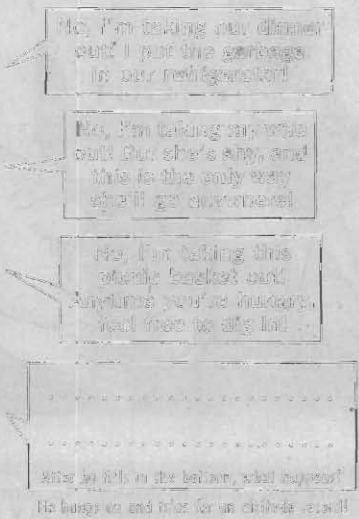 No, I'm taking our dinner
out! I put the garbage
in our refrigerator!
No, I'm taking my wife
out! But she's shy, and
this is the only way
she'll go anywhere!
No, I'm taking this
picnic basket out!
Anytime you're hungry,
feel free to dig in!
After he fills in the balloon, what happens?
He hangs on and tries for an altitude record!